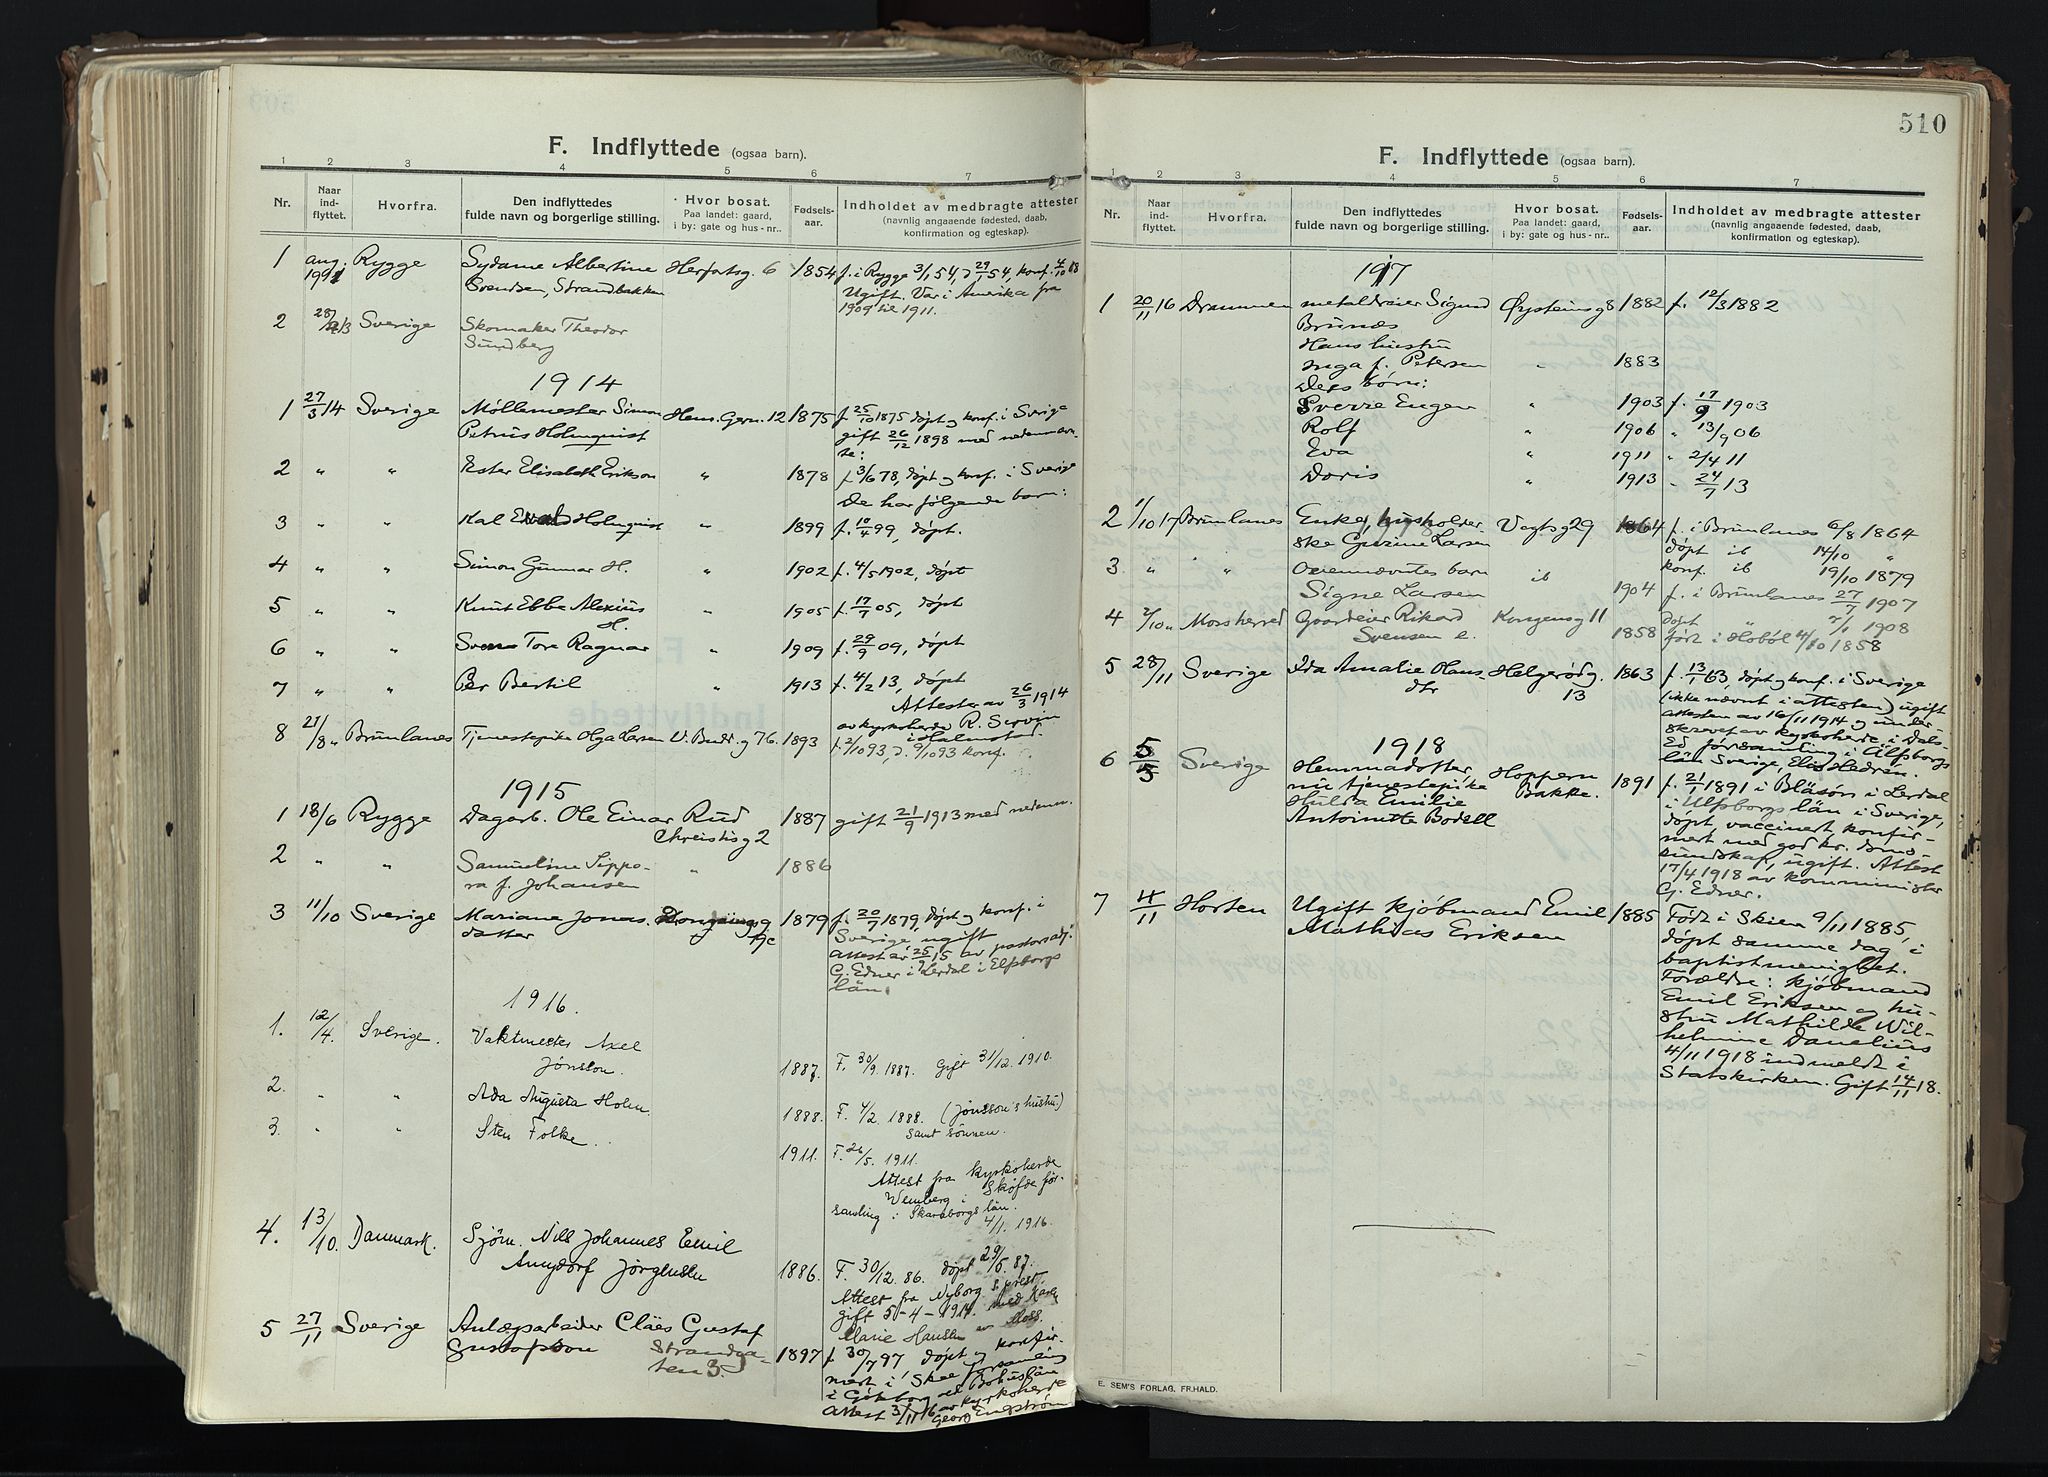 F. Indflyttede (ogsaa barn).
1 2 3 4 5 6 7
Nr.
Naar ind-flyttet.
Hvorfra.
Den indflyttedes fulde navn og borgerlige stilling.
Hvor bosat. Paa landet: gaard, i by: gate og hus-nr..
Fødsels-aar.
Indholdet av medbragte attester (navnlig angaaende fødested, daab, konfirmation og egteskap).
1 aug. Rygge Sydame Albertine 6 1854 f. i Rygge 3/1 54, d 29/1 54, konf. 4/10 68
1911 Svendsen, Strandbakken Ugift. Var i Amerika fra
1909 til 1911.
2 Sverige Skomaker Theodor
Sundberg
1914
1 27/3 14 Sverige Møllemester Simon Hens. Gern. 12 1875 f. 25/10 1875 døpt og konf. i Sverige
Petrus Holmquist gift 26/12 1898 med nedennævn-
te:
2 " " Ester Elisabeth Erikson " 1878 f. 3/6 78, døpt og konf. i Sverige
De har følgende barn:
3 " " Kal Holmquist " 1899 f. 10/4 99, døpt.
4 " " Simon Gunnar H. " 1902 f. 4/5 1902, døpt
5 " " Knut Ebbe Alexius " 1905 f. 17/7 05, døpt
H.
6 " " Sven Tore Ragnar " 1909 f. 29/9 09, døpt
7 " " Per Bertil " 1913 f. 4/2 13, døpt
Attester av 26/3 1914
av kyrkoherde R. Servin
8 21/8 " Brunlanes Tjenestepike Olga Larsen V. Budr. g 76. 1893 i Halmstad.
f. 2/10 93, d. 9/10 93 konf.
1915
1 18/6 Rygge Dagarb. Ole Einar Rud 1887 gift 21/9 1913 med nedenn.
Christisg 2
2 " " Samueline Sippo- " 1886
ra f. Johansen
3 11/10 Sverige Mariane Jonas- 1879 f. 20/7 1879, døpt og konf. i
datter Sverige, ugift
attest av 25/9 15 av pastorsadj.
G. Edner i Lerdal i Elfsborgs
län.
1916.
1. 12/4. Sverige. Vaktmester Axel
Jönsson. 1887. F. 30/9. 1887. Gift 31/12. 1910.
2. " " Ada Augusta Holm. 1888. F. 4/2. 1888. (Jönsson's hustru)
samt sønnen.
3. " " Sten Folke. 1911. F. 26/5. 1911.
Attest fra kyrkoherde
Wennberg i Skøfde för-
samling i Skaraborgs län.
4/1. 1916.
4. 13/10. Danmark. Sjöm. Nils Johannes Emil
Jørgensen 1886. F. 30/12. 86. døpt 29/5. 87.
Attest fra Nyborg s. prest.
gift 5-4-1914. med Karen
Marie Hansen av Moss.
5 27/11 Sverige Anlægsarbeider Cläes Gustaf
Gustafsson Strandga- 1897 f 30/7 97 døpt og konfir-
ten 3. mert i Skee församling
i Göteborg och Bohuslän
attest 3/11 16 av kyrkoherde
Georg Engström
510
F. Indflyttede (ogsaa barn).
1 2 3 4 5 6 7
Nr.
Naar ind-flyttet.
Hvorfra.
Den indflyttedes fulde navn og borgerlige stilling.
Hvor bosat. Paa landet: gaard, i by: gate og hus-nr..
Fødsels-aar.
Indholdet av medbragte attester (navnlig angaaende fødested, daab, konfirmation og egteskap).
1917
1 20/11 16 Drammen metaldreier Sigurd Øysteinsg 8 1882 f. 12/3 1882
Brunæs
Hans hustru
Inga f. Petersen " 1883
Deres børn:
Sverre Eugen " 1903 f. 17/9 1903
Rolf " 1906 " 13/9 06
Eva " 1911 " 2/4 11
Doris " 1913 " 24/7 13
2 1/10 17 Brunlanes Enke, husholder- Vogtsg 29 1864 f. i Brunlanes 6/8 1864
ske Gurine Larsen døpt ib 14/10 "
3. " " Ovennævntes barn ib konf. ib 19/10 1879
Signe Larsen 1904 f. i Brunlanes 27/7 1907
4 2/10 " Mossherred Gaardeier Rikard Kongensg 11 døpt 7/1 1908
Svensen e. 1858 født i Hobøl 4/10 1858
5 28/11 Sverige Ida Amalie Hans- Helgerødg. 1863 f. 13/1 63, døpt og konf. i Sverige
dtr 13 (ikke nævnt i attesten) ugift
attesten av 16/11 1914 og under-
skrevet av kyrkoherde i Dals-
Ed församling i Älfsborgs
län Sverige, Elis Hedrén.
1918
6 5/5 Sverige Hemmadotter, Hoppern 1891 f. 21/1 1891 i Bläsön i Lerdal
nu tjenestepike Bakke. i Ulfsborgs län i Sverige,
Hulda Emilie døpt vaccinert konfir-
Antoinette Bodell mert med god kr. doms-
kundskap, ugift. Attest
17/4 1918 av kommunister
G. Edner.
7 4/11 Horten Ugift kjøbmand Emil 1885 Født i Skien 9/11 1885,
Mathias Eriksen døpt samme dag i
baptistmenighet.
Forældre: kjøbmand
Emil Eriksen og hu-
stru Mathilde Wil-
helmine Danelius
4/11 1918 indmeldt i
Statskirken. Gift 14/11 18.
E. SEM'S FORLAG, FR.HALD.